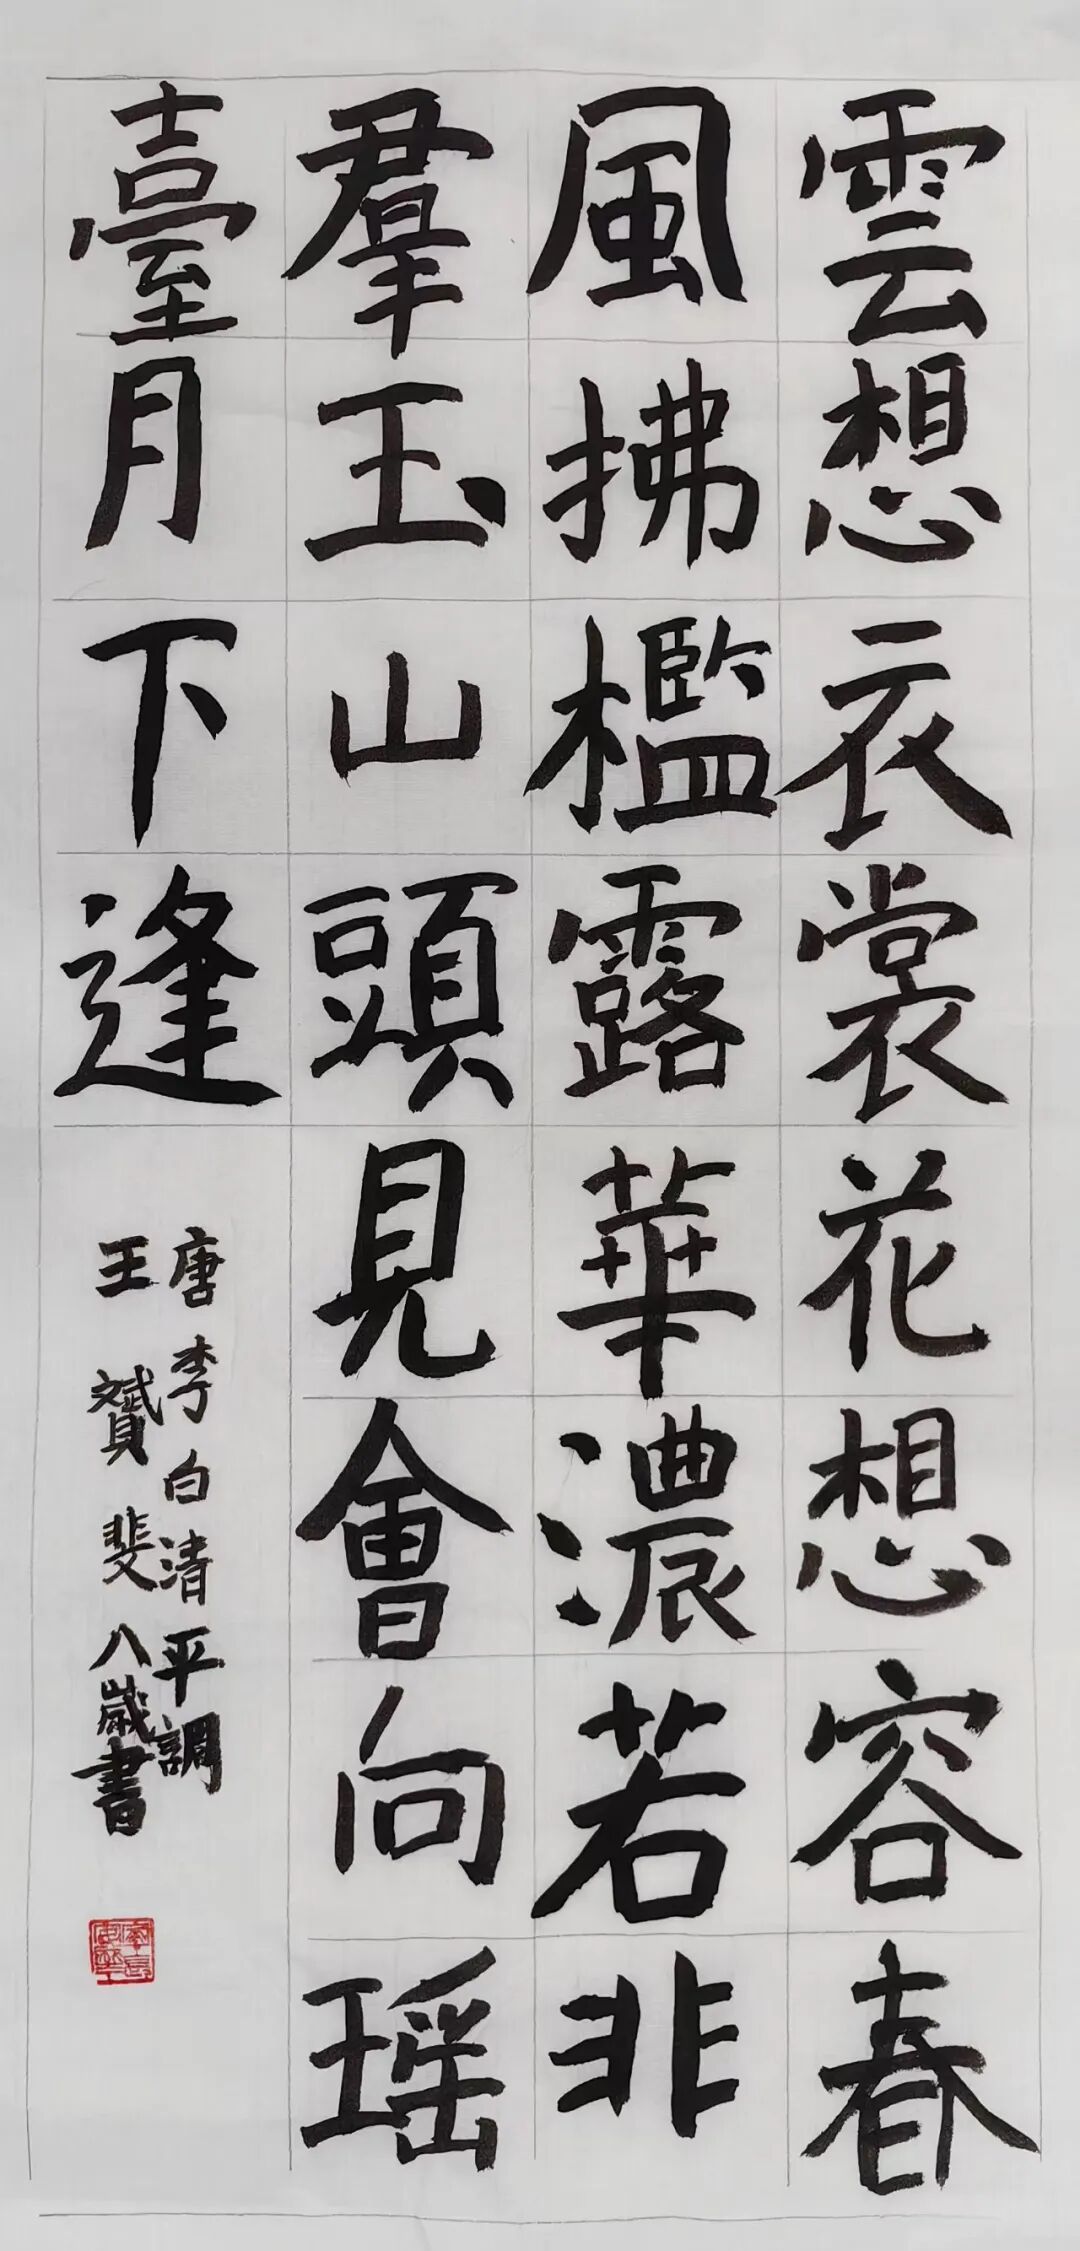 雲想衣裳花想容春
風拂檻露華濃若非
羣玉山頭見會向瑶
臺月下逢
唐李白清平調
王贇斐八歲書